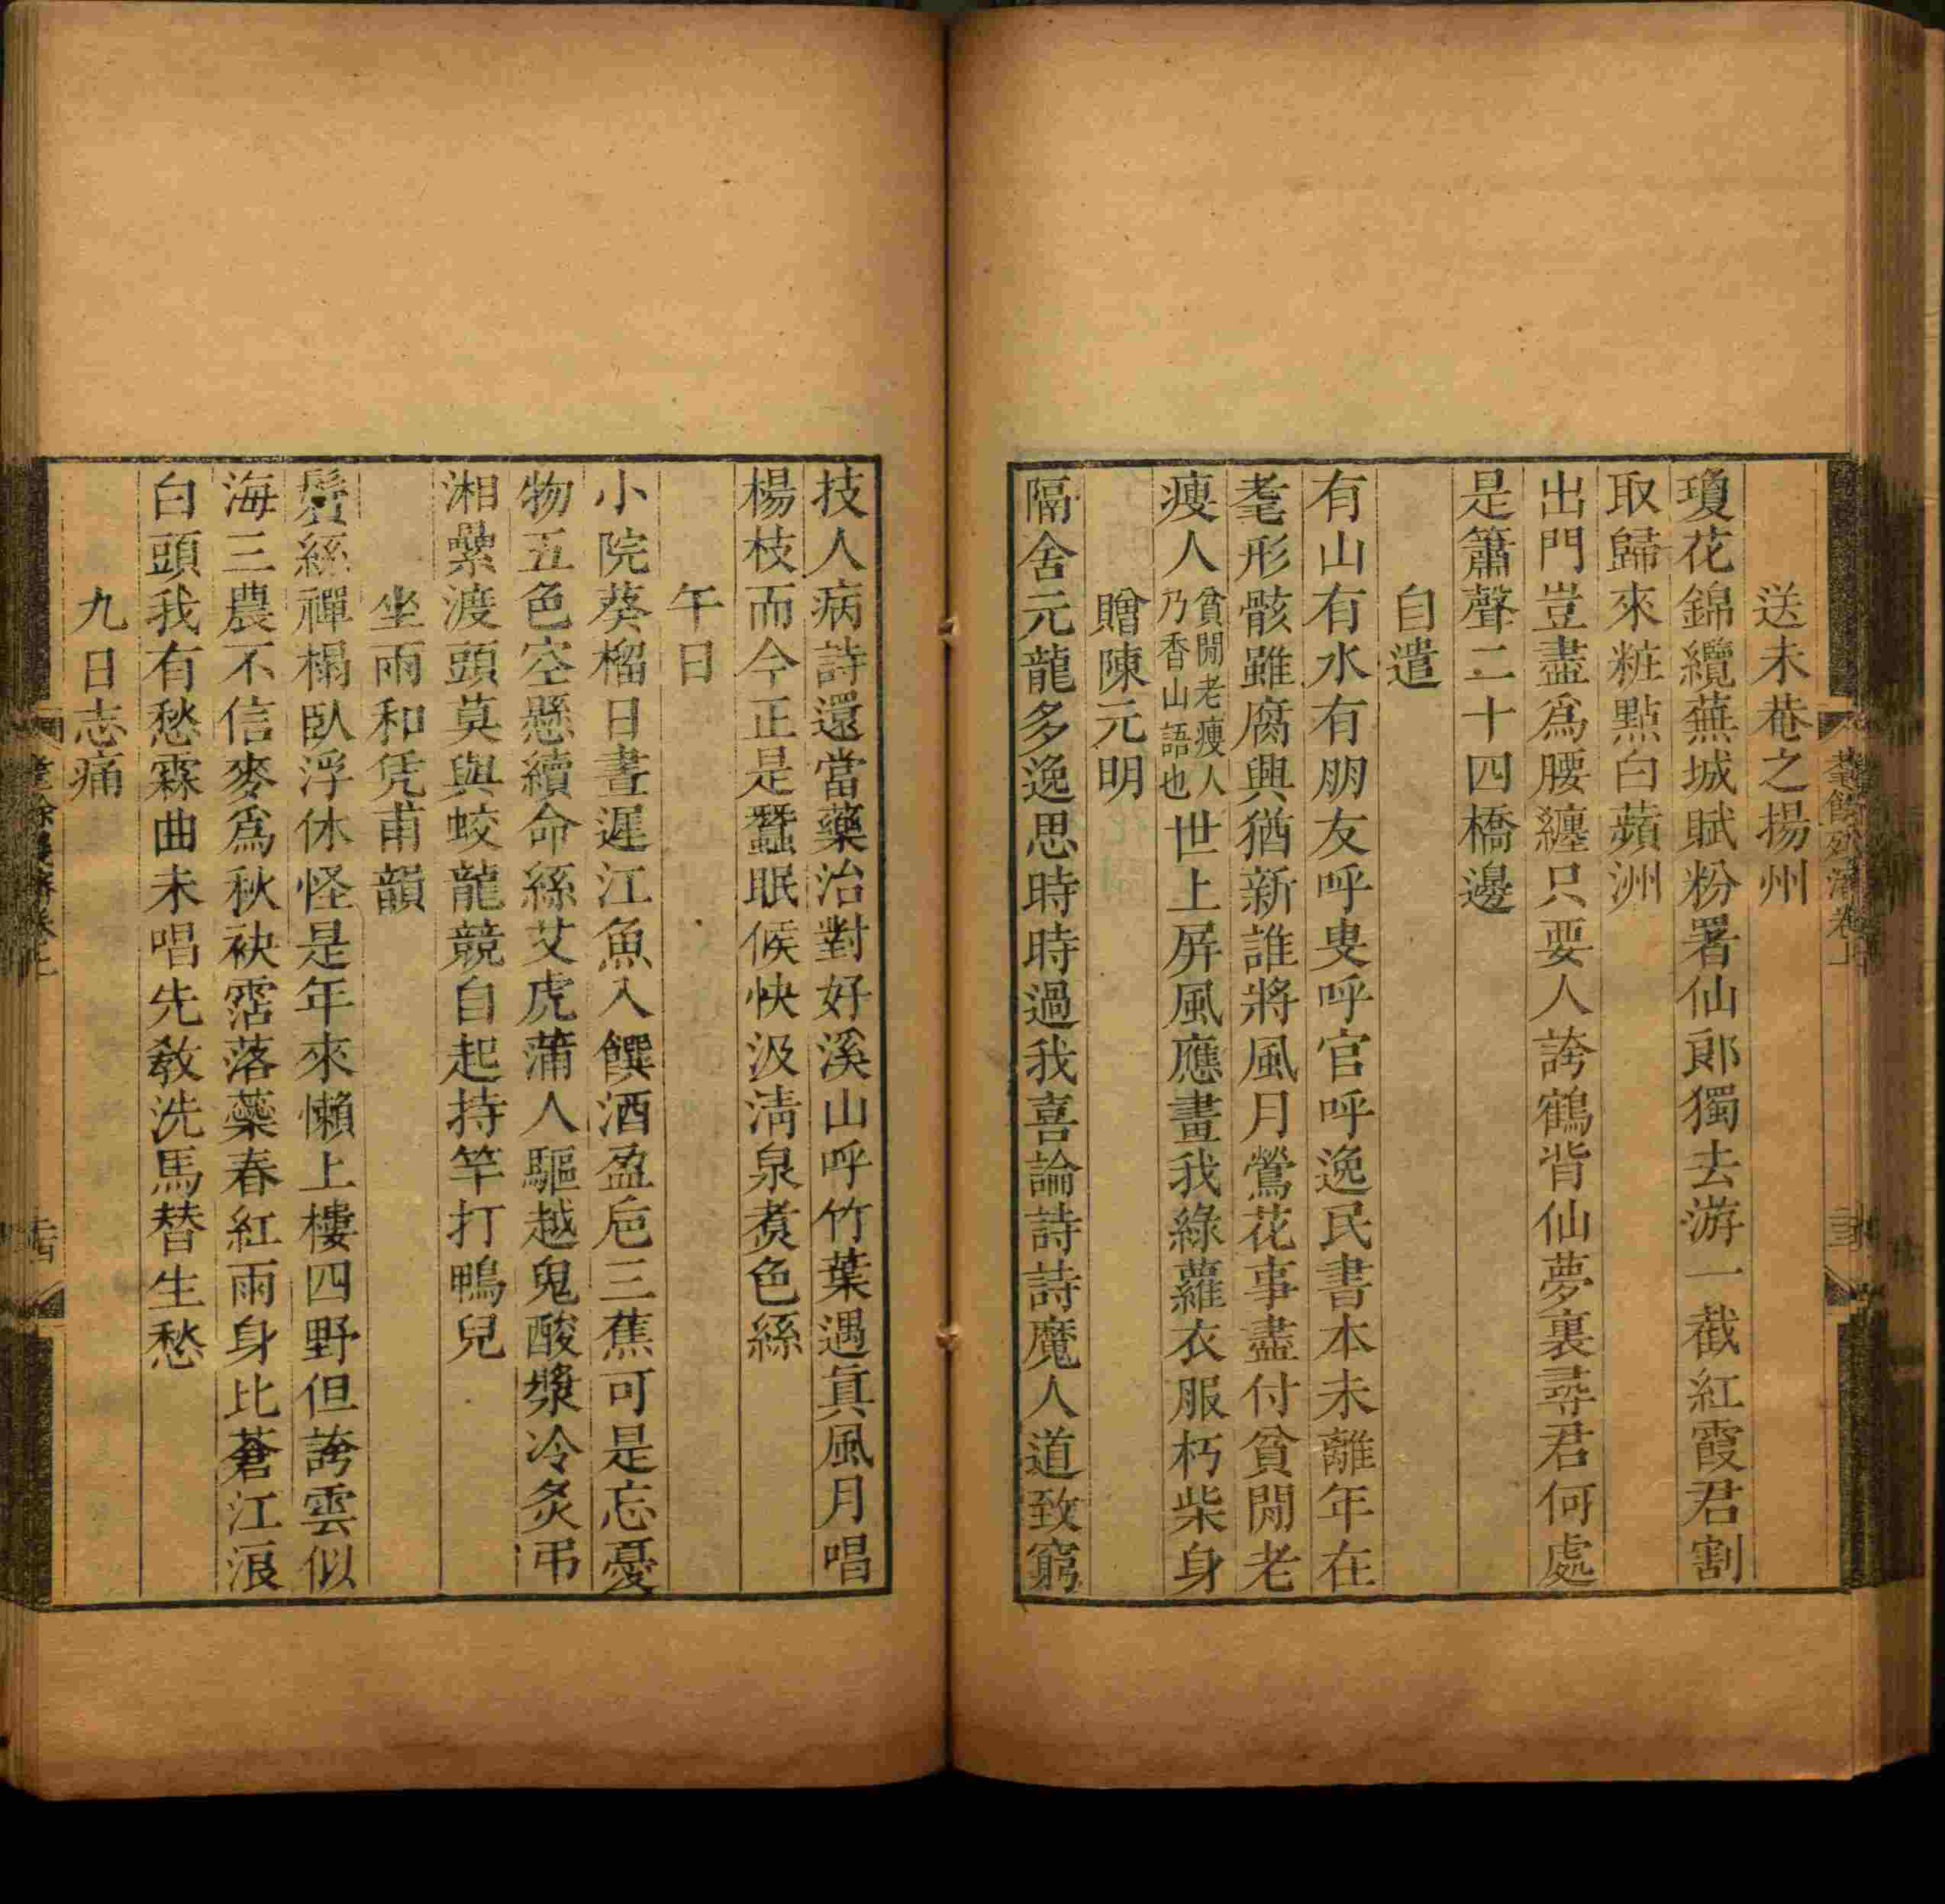 送未菴之揚州
瓊花錦纜蕪城賦粉署仙郎獨去游一截紅霞君割
取歸來粧點白蘋洲
出門豈盡爲腰纏只要人誇鶴背仙夢裏尋君何處
是簫聲二十四橋邊
自遣
有山有水有朋友呼叟呼官呼逸民書本未離年在
耄形骸雖腐興猶新誰將風月鶯花事盡付貧閒老
瘦人貧閒老瘦人乃香山語也世上屏風應畫我綠蘿衣服朽柴身
贈陳元明
隔舍元龍多逸思時時過我喜論詩詩魔人道致窮
技人病詩還當藥治對好溪山呼竹葉遇眞風月唱
楊枝而今正是蠶眠候快汲淸泉煑色絲
午日
小院葵榴日晝遲江魚入饌酒盈巵三蕉可是忘憂
物五色空懸續命絲艾虎蒲人驅越鬼酸漿冷炙弔
湘纍渡頭莫與蛟龍競自起持竿打鴨兒
坐雨和凭甫韻
鬢絲禪榻臥浮休怪是年來懶上樓四野但誇雲似
海三農不信麥爲秋袂霑落藥春紅雨身比蒼江浪
白頭我有愁霖曲未唱先敎洗馬替生愁
九日志痛